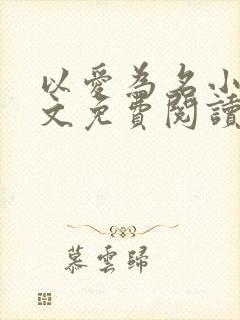 以爱為名小
文免費閱讀
慕雲歸